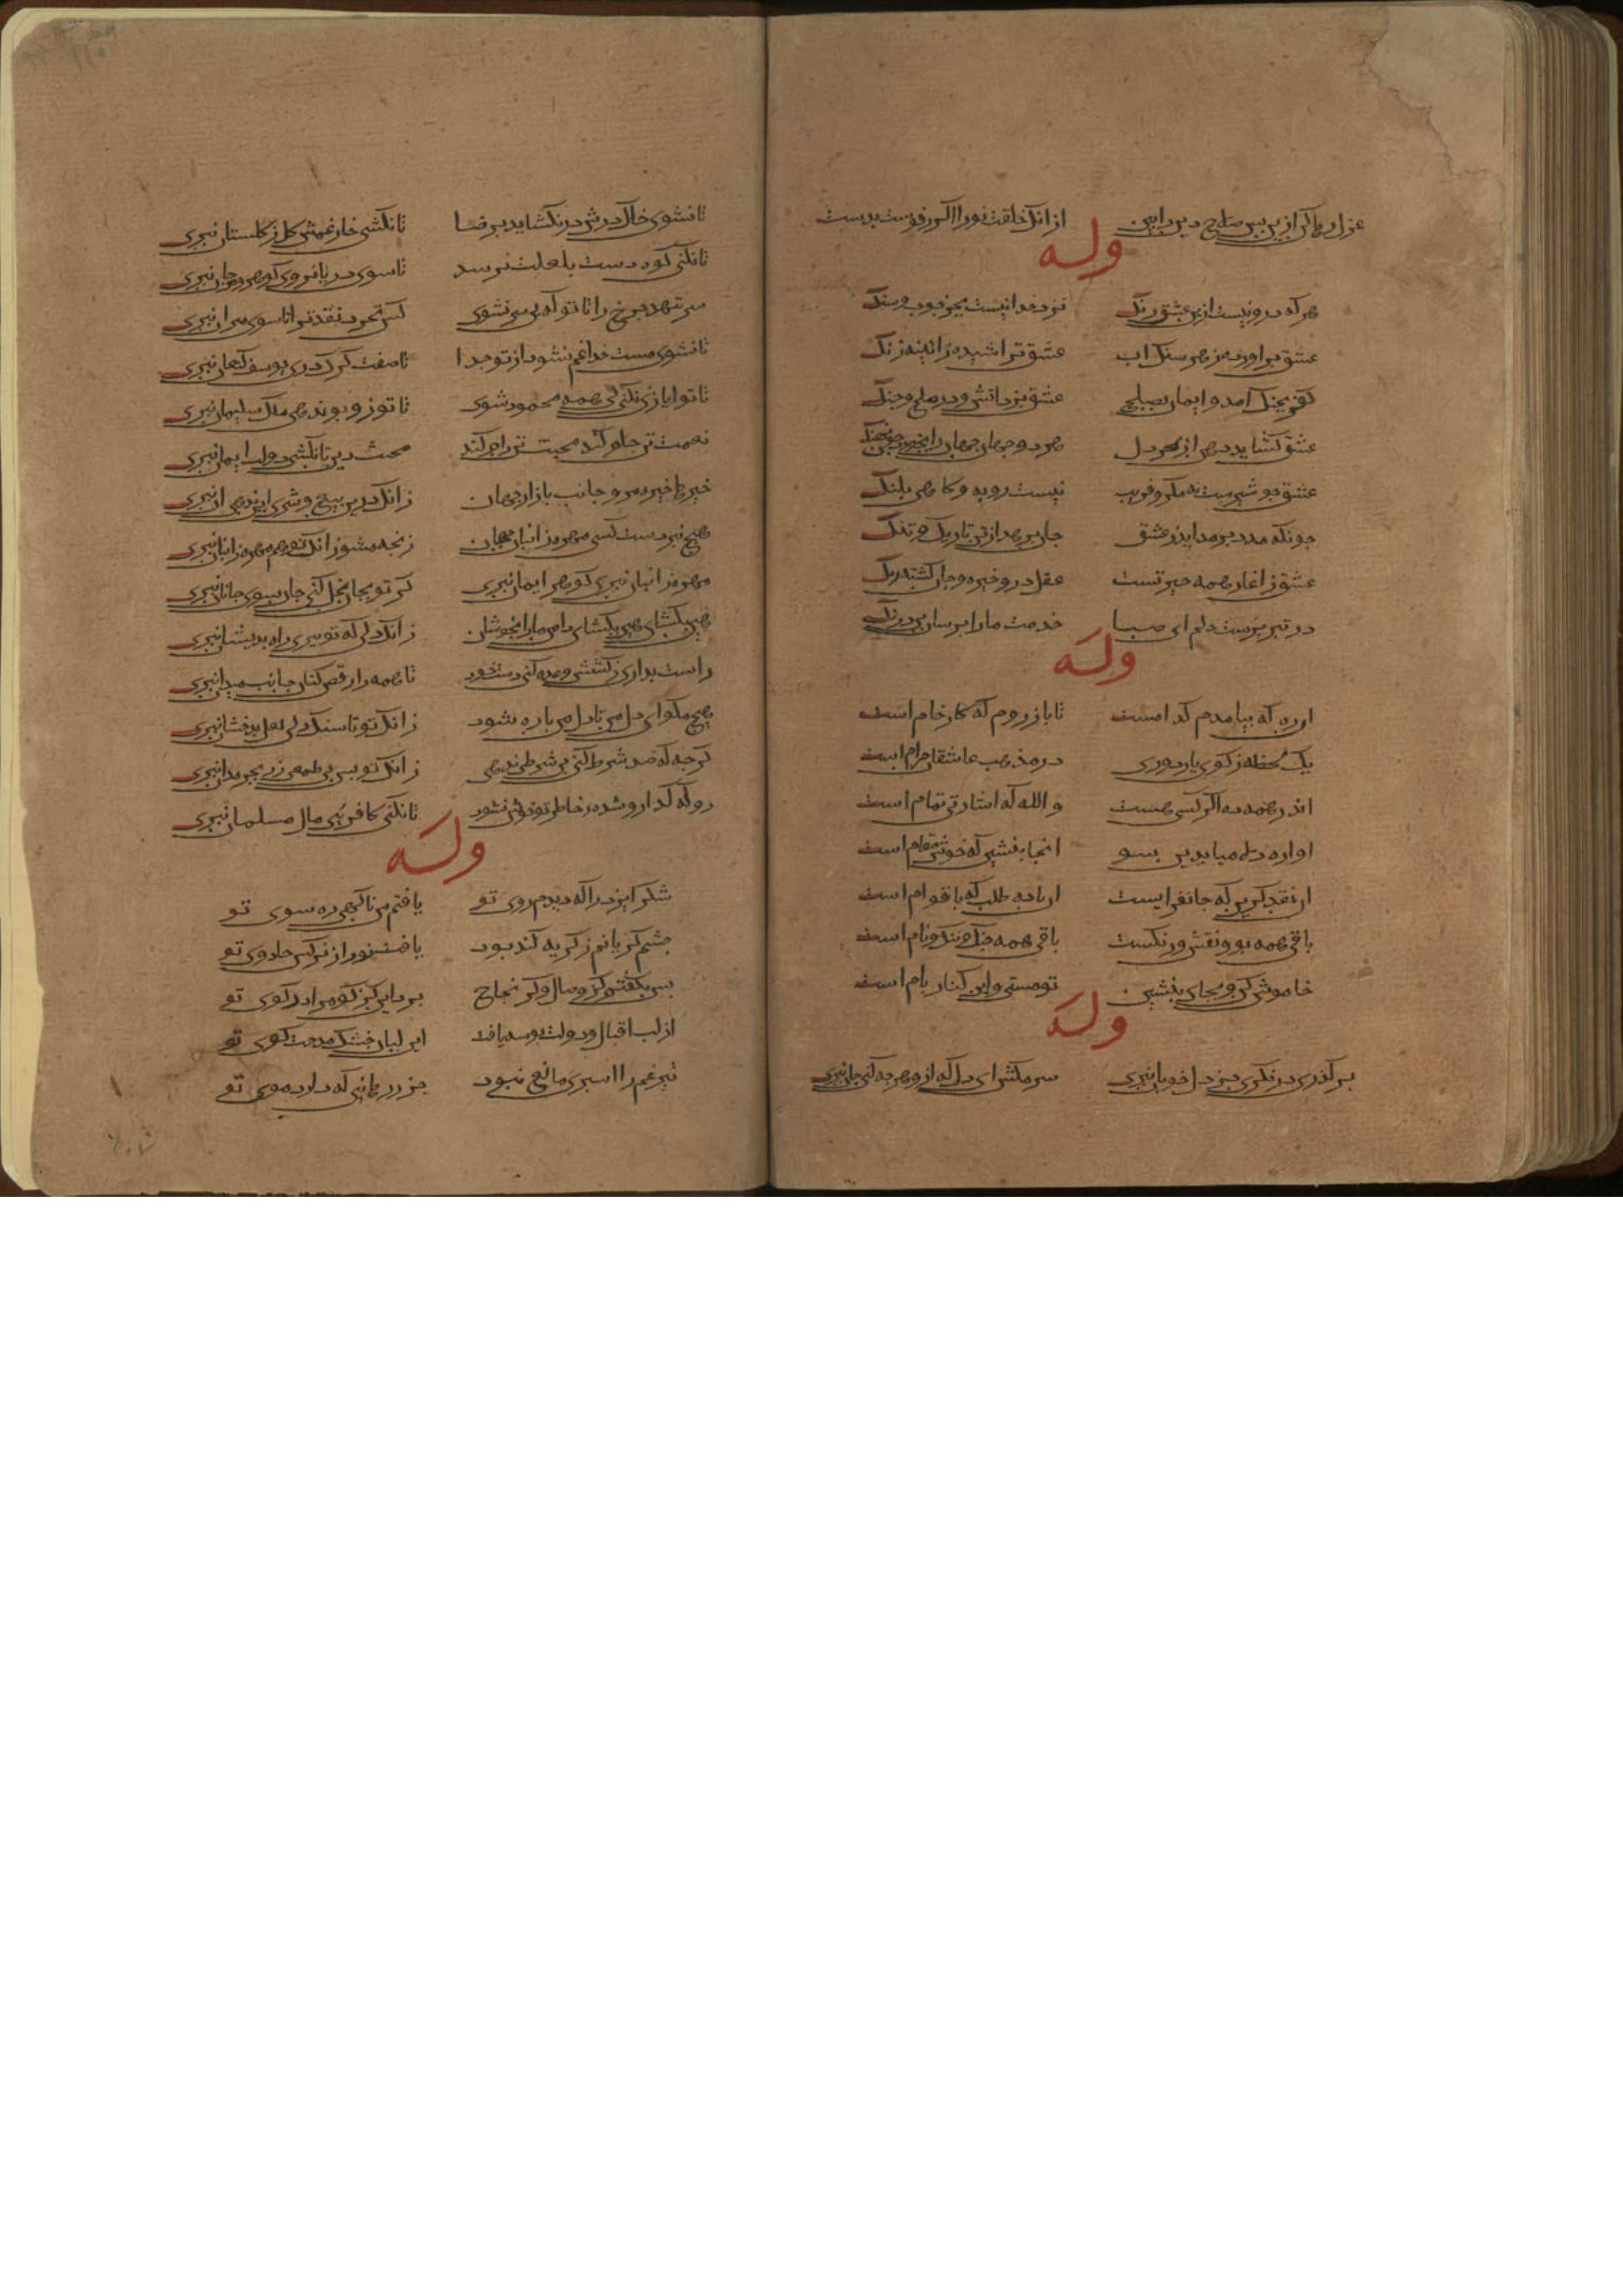 از انک خلقت نورا اکر رفوست بدست
وله
هر که درو نیست ازین عشق رنک نزد خدا نیست بجز جوب و سنک
عشق براورد ز هر سنک اب عشق تراشید ز ائینه زنک
کفر بجنک امد و ایمان بصلح عشق بزد اتش در صلح و جنک
عشق کشاید دهن از بحر دل هر دو جهان را بخورد جون نهنک
عشق جو شیرست نه مکر و فریب نیست روبه و کاهی بلنک
جونکه مدد بر مدد اید ز عشق جان برهد از تن تاریک و تنک
عشق ز اغاز همه حیرتست عقل درو خیره و جان کشته دنک
در تبریزست دلم ای صبا خدمت ما را برسان بی درنک
وله
ان ره که بیامدم کدامست تا باز روم که کار خام است
یک لحظه ز کوی یار دوری در مذهب عاشقان حرام است
اندر همه ده اکر کسی هست والله که اشارتی تمام است
اواره دلا میا بدین سو انجا بنشین که خوش مقام است
ان نقد کزین که جانفزایست ان باده طلب که با قوام است
باقی همه بو و نقش و رنکست باقی همه جنک و ننک و نام است
خاموش کن و بجای بنشین تو مستی و این کنار بام است
وله
بر کذری درنکری جز دل خوبان نبری سر مکش ای دل که ازو هر چه کنی جان نبری
تا نشوی خاک درش در نکشاید برضا تا نکشی خار غمش کل ز کلستان نبری
تا نکنی کوه دست بلعلت نرسد تا سوی دریا نروی کوهر و مرجان نبری
سر ننهد جرخ را تا تو که بی سر نشوی کس نخرد نقد ترا تا سوی میزان نبری
تا نشوی مست خدا غم نشود از تو جدا تا صفت کرک دری یوسف کنعان نبری
تا تو ایازی نکنی کی همه محمود شوی تا تو ز دیوی نرهی ملک سلیمان نبری
نعمت تن خام کند محنت تن رام کند محنت دین تا نکشی دولت ایمان نبری
خیره میا خیره مرو جانب بازار جهان زانک درین بیع و شری این ندهی ان نبری
هیچ نبردست کسی مهره ز انبان جهان رنجه مشو زانک تو هم مهره ز انبان نبری
مهره ز انبان نبری کوهر ایمان نبری کر تو بجان بخل کنی جان سوی جانان نبری
زانک دلی که تو بری راه بریشان نبری
راست نداری ز کشش وعده کنی دستخوش تا همه را رقص کنان جانب میدان نبری
هیچ مکو ای دل من تا دل من باره نشود زانک تو تا سنک دلی لعل بدخشان نبری
کرجه که صد شرط کنی بی شرط ندهی زانک تو بس بی طمعی زر بحرمدان نبری
تا نکنی کافریی مال مسلمان نبری
وله
شکر ایزد را که دیدم روی تو یافتم من ناکهی ره سوی تو
جشم کریانم ز کریه کند بود یافت نور از نرکس جادوی تو
بس بکفتم کو وصال و کو نجاح برد این کو کو مرا در کوی تو
از لب اقبال و دولت بوسه یافت این لبان خشک مدحت کوی تو
تیر غم را اسپری مانع نبود جز زره هایی که دارد موی تو